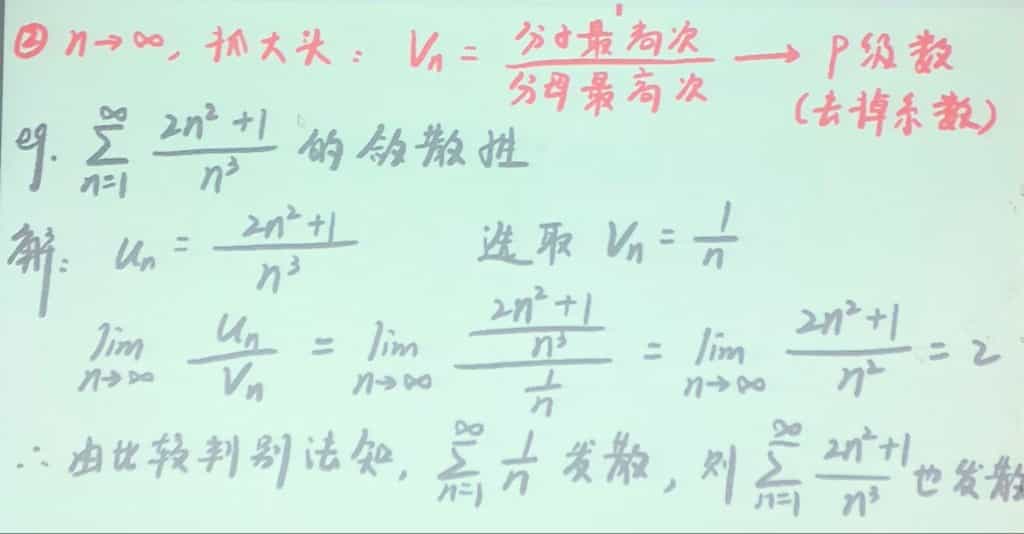 ② n→∞, 抓大头: Vn = 分子最高次/分母最高次 → P级数
(去掉系数)
eg. ∑_{n=1}^{∞} (2n²+1)/n³ 的敛散性
解: un = (2n²+1)/n³ 选取 Vn = 1/n
lim_{n→∞} un/Vn = lim_{n→∞} ((2n²+1)/n³)/(1/n) = lim_{n→∞} (2n²+1)/n² = 2
∴ 由比较判别法知, ∑_{n=1}^{∞} 1/n 发散, 则 ∑_{n=1}^{∞} (2n²+1)/n³ 也发散